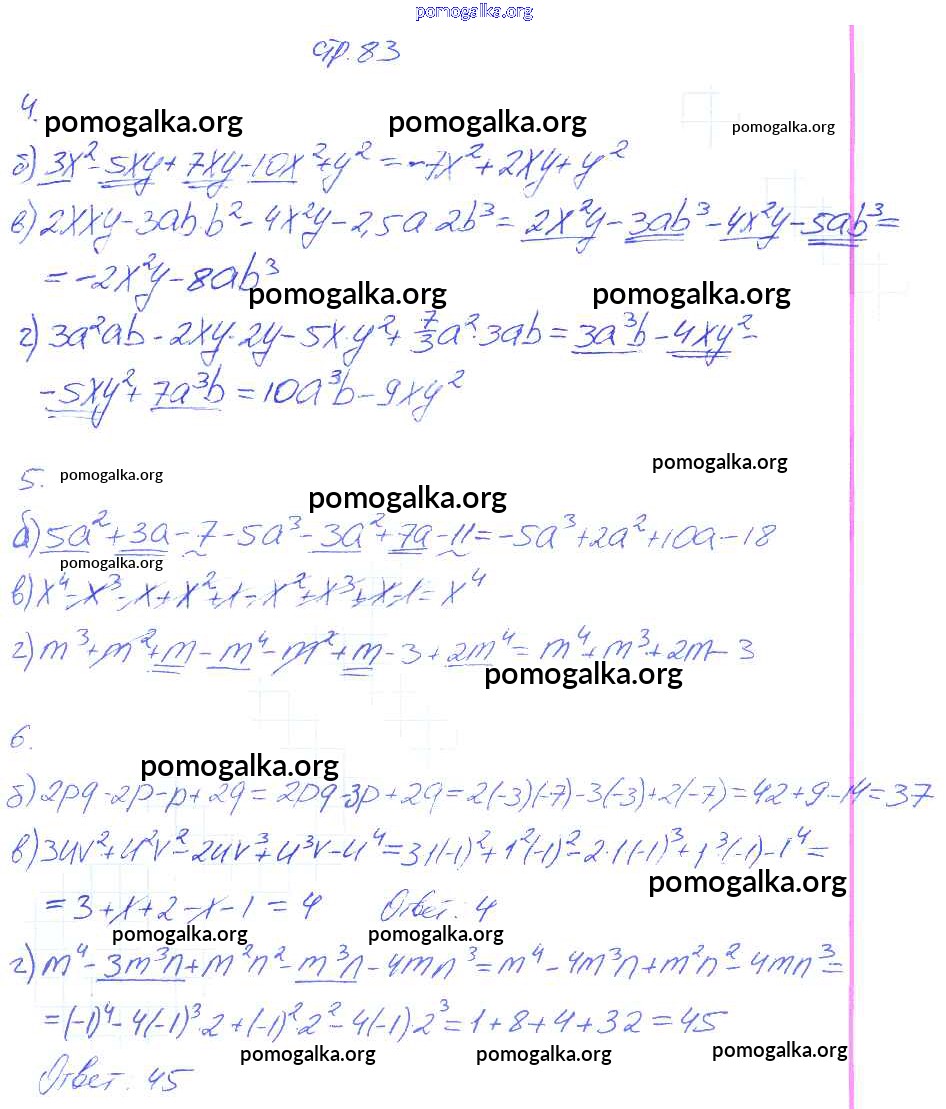 pomogalka.org
стр. 83
4.
pomogalka.org pomogalka.org pomogalka.org
б) 3x² - 5xy + 7xy - 10x² + y² = -7x² + 2xy + y²
в) 2xxy - 3ab b² - 4x²y - 2,5a 2b³ = 2x²y - 3ab³ - 4x²y - 5ab³ =
= -2x²y - 8ab³
pomogalka.org pomogalka.org
г) 3a²ab - 2xy·2y - 5x·y² + 7/3a²·3ab = 3a³b - 4xy² -
- 5xy² + 7a³b = 10a³b - 9xy²
pomogalka.org
5. pomogalka.org
pomogalka.org
б) 5a² + 3a - 7 - 5a³ - 3a² + 7a - 11 = -5a³ + 2a² + 10a - 18
pomogalka.org
в) x⁴ - x³ - x + x² + 1 - x² + x³ + x - 1 = x⁴
г) m³ + m² + m - m⁴ - m² + m - 3 + 2m⁴ = m⁴ + m³ + 2m - 3
pomogalka.org
6.
pomogalka.org
б) 2pq - 2p - p + 2q = 2pq - 3p + 2q = 2(-3)(-7) - 3(-3) + 2(-7) = 42 + 9 - 14 = 37
в) 3uv² + u²v² - 2uv³ + u³v - u⁴ = 3·1(-1)² + 1²(-1)² - 2·1(-1)³ + 1³(-1) - 1⁴ =
pomogalka.org
= 3 + 1 + 2 - 1 - 1 = 4 Ответ: 4
pomogalka.org pomogalka.org
г) m⁴ - 3m³n + m²n² - m³n - 4mn³ = m⁴ - 4m³n + m²n² - 4mn³ =
= (-1)⁴ - 4(-1)³·2 + (-1)²2² - 4(-1)2³ = 1 + 8 + 4 + 32 = 45
pomogalka.org pomogalka.org pomogalka.org
Ответ: 45